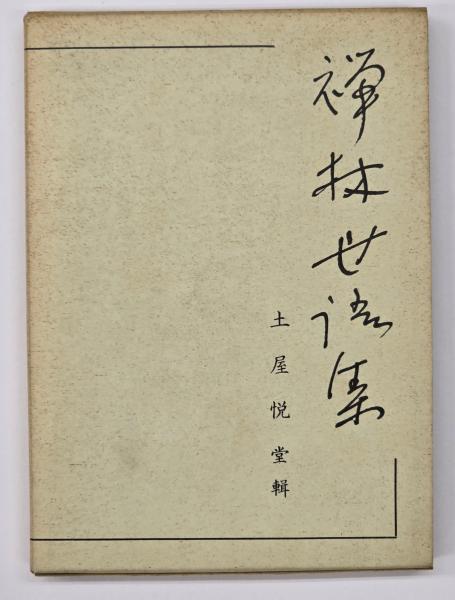 禅林世語集
土屋悦堂輯